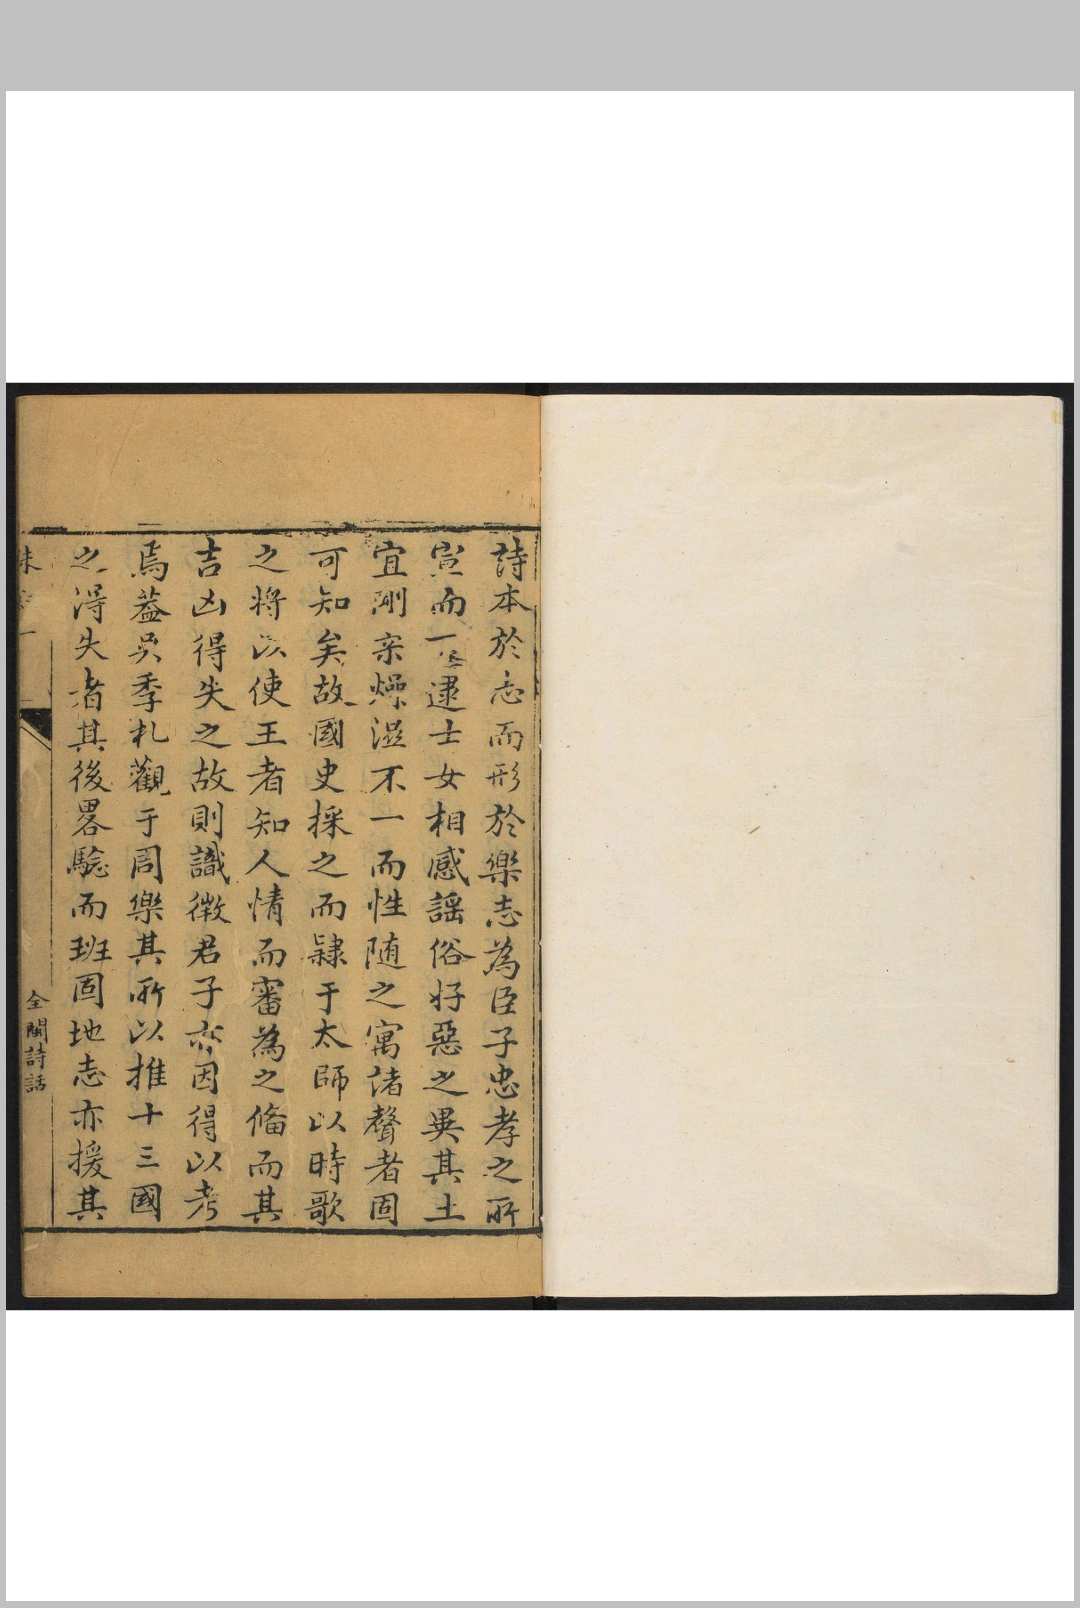 詩本於志而形於樂志為臣子忠孝之所
宣而一逮士女相感謡俗好惡之異其土
宜剛柔燥溼不一而性随之寓諸聲者固
可知矣故國史採之而隷于太師以時歌
之将以使王者知人情而審為之偹而其
吉凶得失之故則識微君子亦因得以考
焉葢吳季札觀于周樂其所以推十三國
之得失者其後畧騐而班固地志亦援其
朱 一
全閩詩話